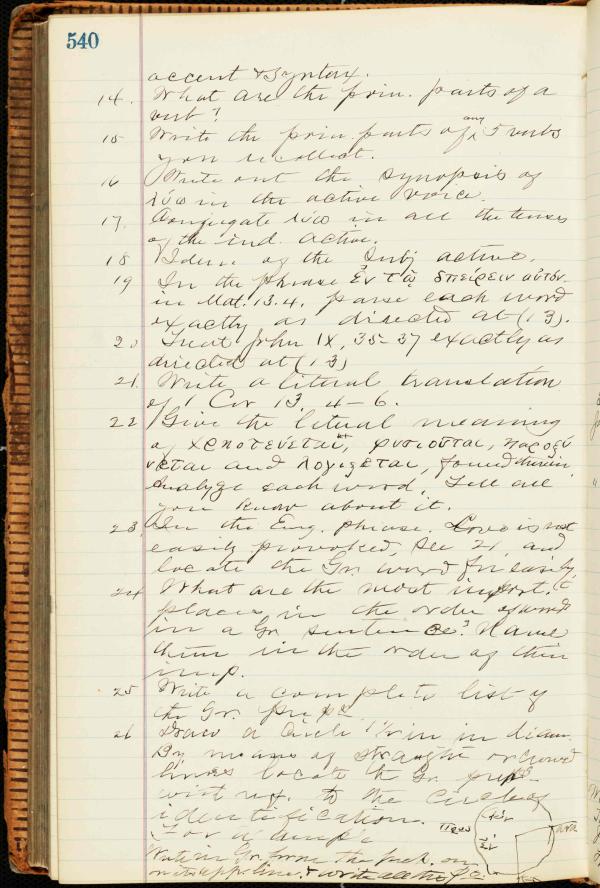 540
accent & syntax.
14. What are the prin. parts of a
verb?
15 Write the prin. parts of any 5 verbs
you recollect.
16 Write out the synopsis of
λύω in the active voice.
17. Conjugate λύω in all the tenses
of the ind. active.
18 Idem of the Subj active.
19 In the phrase ἐν τῷ σπείρειν αὐτὸν.
in Mat. 13.4. parse each word
exactly as directed at (13).
20 Treat John IX, 35-37 exactly as
directed at (13)
21. Write a literal translation
of 1 Cor 13, 4-6.
22 Give the literal meaning
of χρηστεύεται, φυσιοῦται, παροξύ
νεται and λογίζεται, found therein.
Analyze each word. Tell all
you know about it.
23. In the Eng. phrase. Love is not
easily provoked, see 21, and
locate the Gr. word for easily.
24 What are the most import.t
places in the order of words
in a Gr. sentence? Name
them in the order of their
imp.
25 Write a complete list of
the Gr. preps.
26 Draw a circle 1½ in in diam.
By means of straight or curved
lines locate the Gr. preps
with ref. to the circle of
identification.
For example
Write in Gr. from the prep. on
its app. line. & write all the